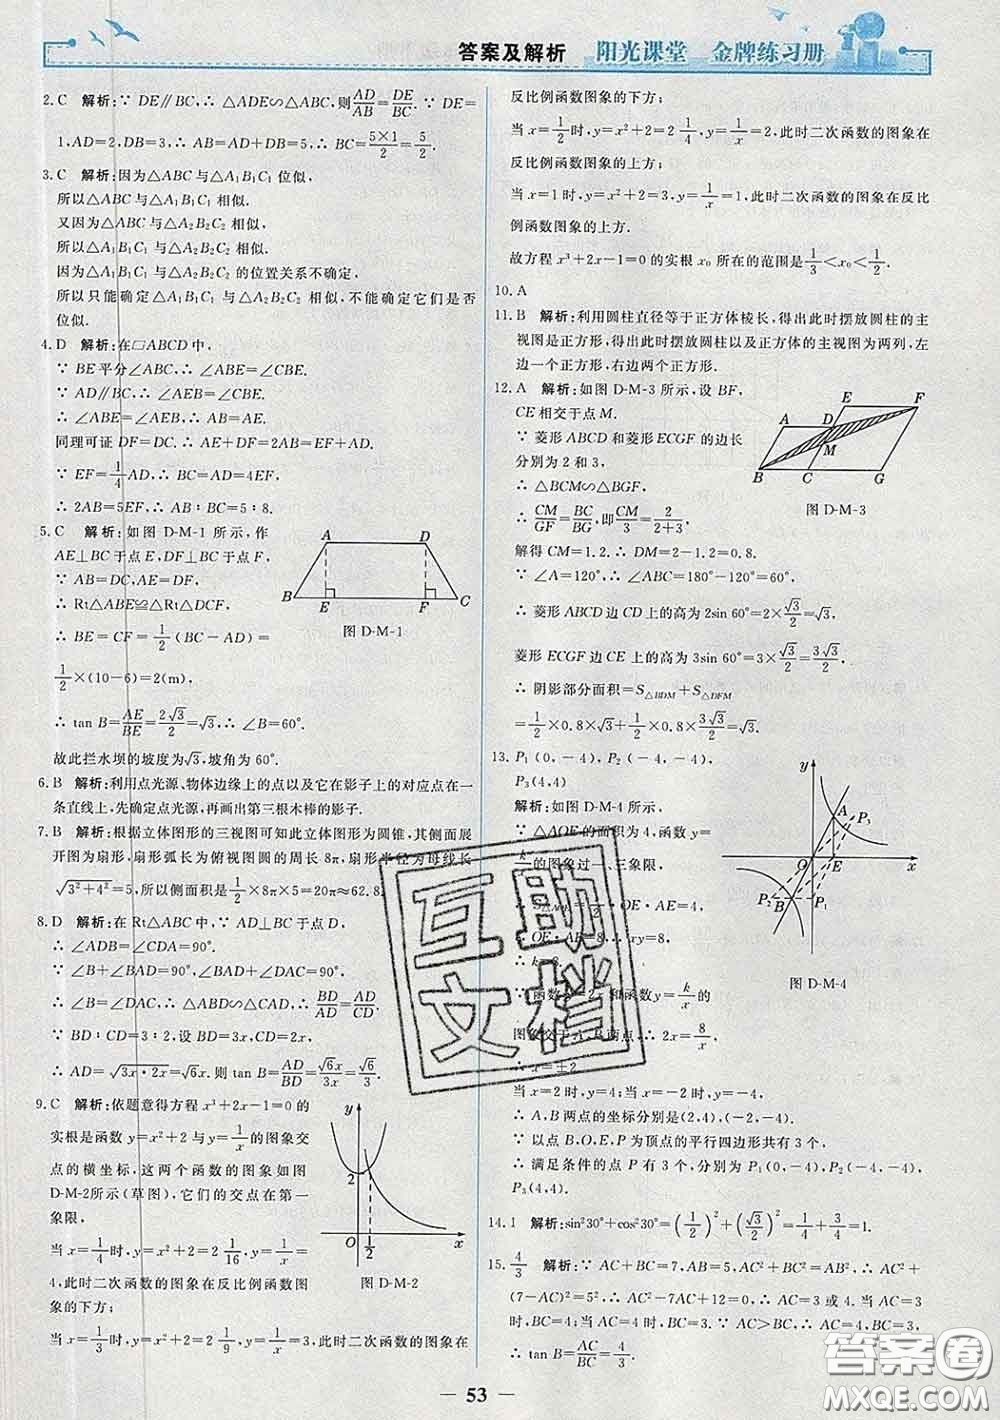 答案及解析 阳光课堂 金牌练习册
2. C 解析:∵ DE∥BC,∴ △ADE∽△ABC,则AD/AB=DE/BC. ∵ DE=
1,AD=2,DB=3,∴ AB=AD+DB=5,∴ BC=5×1/2=5/2.
3. C 解析:因为△ABC与△A₁B₁C₁位似,
所以△ABC与△A₁B₁C₁相似.
又因为△ABC与△A₂B₂C₂相似,
所以△A₁B₁C₁与△A₂B₂C₂相似.
因为△A₁B₁C₁与△A₂B₂C₂的位置关系不确定,
所以只能确定△A₁B₁C₁与△A₂B₂C₂相似,不能确定它们是否
位似.
4. D 解析:在▱ABCD中,
∵ BE平分∠ABC,∴ ∠ABE=∠CBE.
∵ AD∥BC,∴ ∠AEB=∠CBE.
∴ ∠ABE=∠AEB,∴ AB=AE.
同理可证DF=DC.∴ AE+DF=2AB=EF+AD.
∵ EF=1/4AD,∴ AD=4EF,
∴ 2AB=5EF,∴ AB∶BC=5∶8.
5. C 解析:如图D-M-1所示,作
AE⊥BC于点E,DF⊥BC于点F,
∵ AB=DC,AE=DF,
∴ Rt△ABE≌Rt△DCF.
∴ BE=CF=1/2(BC-AD)=
1/2×(10-6)=2(m),
A D B E F C
图 D-M-1
∴ tan B=AE/BE=2√3/2=√3,∴ ∠B=60°.
故此拦水坝的坡度为√3,坡角为60°.
6. B 解析:利用点光源、物体边缘上的点以及它在影子上的对应点在一
条直线上,先确定点光源,再画出第三根木棒的影子.
7. B 解析:根据立体图形的三视图可知此立体图形为圆锥,其侧面展
开图为扇形,扇形弧长为俯视图圆的周长8π,扇形半径为母线长
√(3²+4²)=5,所以侧面积是1/2×8π×5=20π≈62.8.
8. D 解析:在Rt△ABC中,∵ AD⊥BC于点D,
∴ ∠ADB=∠CDA=90°.
∵ ∠B+∠BAD=90°,∠BAD+∠DAC=90°,
∴ ∠B=∠DAC,∴ △ABD∽△CAD,∴ BD/AD=AD/CD.
∵ BD∶CD=3∶2,设BD=3x,CD=2x,
∴ AD=√(3x·2x)=√6x.则tan B=AD/BD=√6x/3x=√6/3.
9. C 解析:依题意得方程x³+2x-1=0的
实根是函数y=x²+2与y=1/x的图象交
点的横坐标,这两个函数的图象如图
D-M-2所示(草图),它们的交点在第一
象限,
当x=1/4时,y=x²+2=2 1/16,y=1/x=
4,此时二次函数的图象在反比例函数图
象的下方;
y 2 O 1/2 x
图 D-M-2
当x=1/3时,y=x²+2=2 1/9,y=1/x=3,此时二次函数的图象在
反比例函数图象的下方;
当x=1/2时,y=x²+2=2 1/4,y=1/x=2,此时二次函数的图象在
反比例函数图象的上方;
当x=1时,y=x²+2=3,y=1/x=1,此时二次函数的图象在反比
例函数图象的上方.
故方程x³+2x-1=0的实根x₀所在的范围是1/3<x₀<1/2.
10. A
11. B 解析:利用圆柱直径等于正方体棱长,得出此时摆放圆柱的主
视图是正方形,得出此时摆放圆柱以及正方体的主视图为两列,左
边一个正方形,右边两个正方形.
12. A 解析:如图D-M-3所示,设BF,
CE相交于点M.
∵ 菱形ABCD和菱形ECGF的边长
分别为2和3,
∴ △BCM∽△BGF,
∴ CM/GF=BC/BG,即CM/3=2/(2+3).
A D E F M B C G
图 D-M-3
解得CM=1.2.∴ DM=2-1.2=0.8.
∵ ∠A=120°,∴ ∠ABC=180°-120°=60°.
∴ 菱形ABCD边CD上的高为2sin 60°=2×√3/2=√3,
菱形ECGF边CE上的高为3sin 60°=3×√3/2=3√3/2.
∴ 阴影部分面积=S△BDM+S△DFM
=1/2×0.8×√3+1/2×0.8×3√3/2=√3.
13. P₁(0,-4),P₂(-4,-4),
P₃(4,4)
解析:如图D-M-4所示,
∵ △AOE的面积为4,函数y=
k/x的图象过一、三象限,
∴ OE·AE=8,∴ xy=8,
∴ k=8.
∵ 函数y=2x和函数y=k/x的
图象交于A,B两点,∴ 2x=8/x,
∴ x=±2.
y A P₃ O E x P₂ B P₁
图 D-M-4
当x=2时,y=4;当x=-2时,y=-4,
∴ A,B两点的坐标分别是(2,4),(-2,-4).
∵ 以点B,O,E,P为顶点的平行四边形共有3个,
∴ 满足条件的点P有3个,分别为P₁(0,-4),P₂(-4,-4),
P₃(4,4).
14. 1 解析:sin²30°+cos²30°=(1/2)²+(√3/2)²=1/4+3/4=1.
15. 4/3 解析:∵ AC+BC=7,AB=5,AC²+BC²=AB²,∴ AC²+
(7-AC)²=5²,∴ AC²-7AC+12=0,∴ AC=3或4.当AC=3
时,BC=4;当AC=4时,BC=3.∵ AC>BC,∴ AC=4,BC=3,
∴ tan B=AC/BC=4/3.
互助
文档
答案圈
MXQE.COM
53